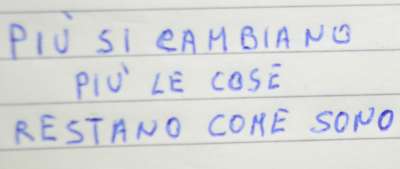 PIÙ SI CAMBIANO
PIU' LE COSE
RESTANO COME SONO